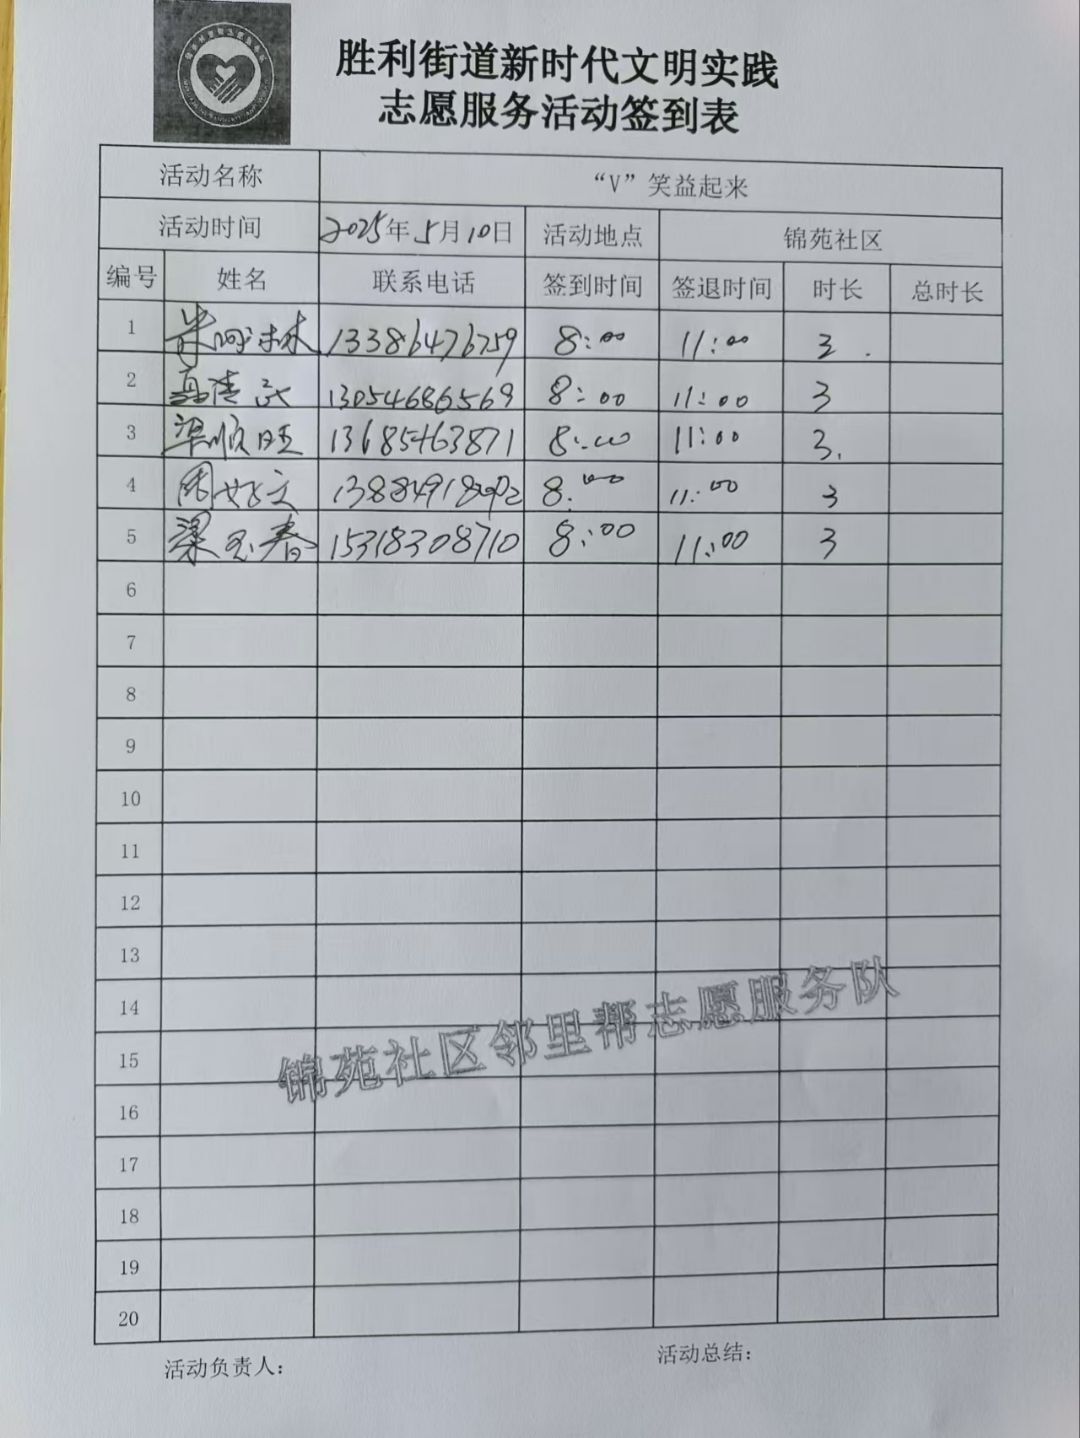 胜利街道新时代文明实践
志愿服务活动签到表
活动名称 “V”笑益起来
活动时间 2025年5月10日 活动地点 锦苑社区
编号 姓名 联系电话 签到时间 签退时间 时长 总时长
1 13386476759 8:00 11:00 3
2 13054686569 8:00 11:00 3
3 梁顺旺 13685463871 8:00 11:00 3
4 周好文 8:00 11:00 3
5 梁玉春 15318308710 8:00 11:00 3
6
7
8
9
10
11
12
13
14
15
16
17
18
19
20
锦苑社区邻里帮志愿服务队
活动负责人： 活动总结：